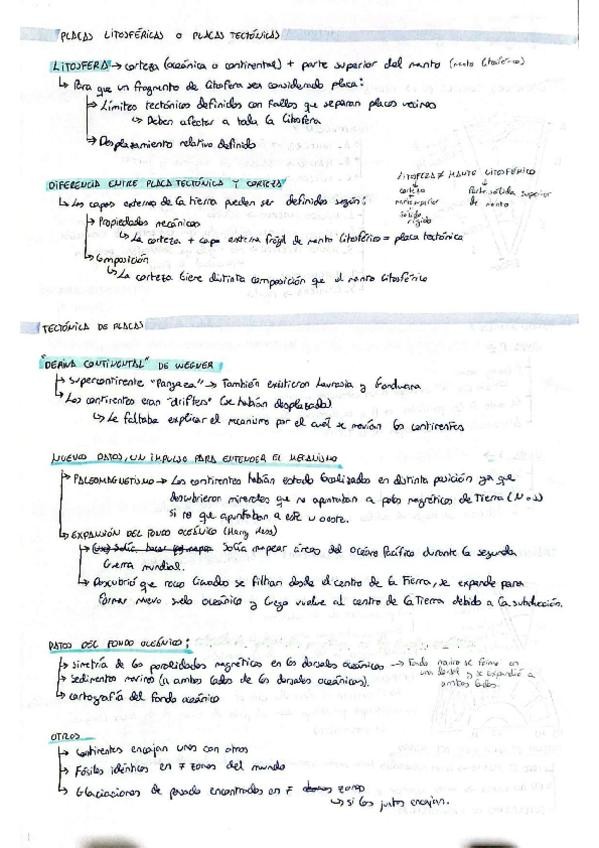 PLACAS LITOSFÉRICAS O PLACAS TECTÓNICAS
LITOSFERA → corteza (oceánica o continental) + parte superior del manto (manto litosférico)
↳ Para que un fragmento de litosfera sea considerado placa:
→ Límites tectónicos definidos con fallas que separan placas vecinas
↳ Deben afectar a toda la litosfera
→ Desplazamiento relativo definido
DIFERENCIA ENTRE PLACA TECTÓNICA Y CORTEZA
↳ Las capas externas de la tierra pueden ser definidas según:
→ Propiedades mecánicas
↳ La corteza + capa externa frágil de manto litosférico = placa tectónica
→ Composición
↳ La corteza tiene distinta composición que el manto litosférico
LITOSFERA ≠ MANTO LITOSFÉRICO
corteza
+
manto superior
sólido
rígido
Parte sólida superior
de manto
TECTÓNICA DE PLACAS
"DERIVA CONTINENTAL" DE WEGNER
→ Supercontinente "Pangaea" → También existieron Laurasia y Gondwana
→ Los continentes eran "drifters" (se habían desplazado)
↳ Le faltaba explicar el mecanismo por el cuál se movían los continentes
NUEVOS DATOS, UN IMPULSO PARA ENTENDER EL MECANISMO
→ PALEOMAGNETISMO → Los continentes habían estado localizados en distinta posición ya que
descubrieron minerales que no apuntaban a polos magnéticos de Tierra (N o S)
si no que apuntaban a este u oeste.
→ EXPANSIÓN DEL FONDO OCEÁNICO (Harry Hess)
→ Solía mapear áreas del océano Pacífico durante la segunda
Guerra mundial.
→ Descubrió que rocas se filtran desde el centro de la Tierra, se expande para
formar nuevo suelo oceánico y luego vuelve al centro de la Tierra debido a la subducción.
DATOS DEL FONDO OCEÁNICO:
→ Simetría de las paralidades magnéticas en las dorsales oceánicas → Fondo marino se forma en
una dorsal y se expandió a
ambos lados.
→ Sedimentos marinos (a ambos lados de las dorsales oceánicas).
→ Cartografía del fondo oceánico
OTROS
→ Continentes encajan unos con otros
→ Fósiles idénticos en ≠ zonas del mundo
→ Glaciaciones de pasado encontradas en ≠ zonas
↳ si los juntas encajan.